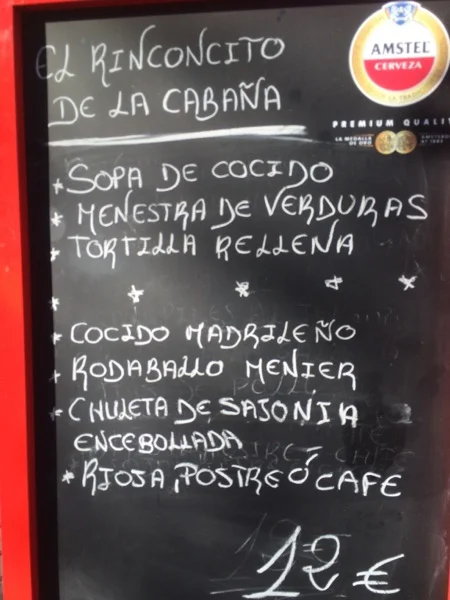 EL RINCONCITO
DE LA CABAÑA
AMSTEL
CERVEZA
PREMIUM QUALI
LA MEDALLA
DE ORO
* SOPA DE COCIDO
* MENESTRA DE VERDURAS
* TORTILLA RELLENA
* * * * *
* COCIDO MADRILEÑO
* RODABALLO MENIER
* CHULETA DE SAJONIA
ENCEBOLLADA
* RIOJA, POSTRE Ó CAFE
12 €